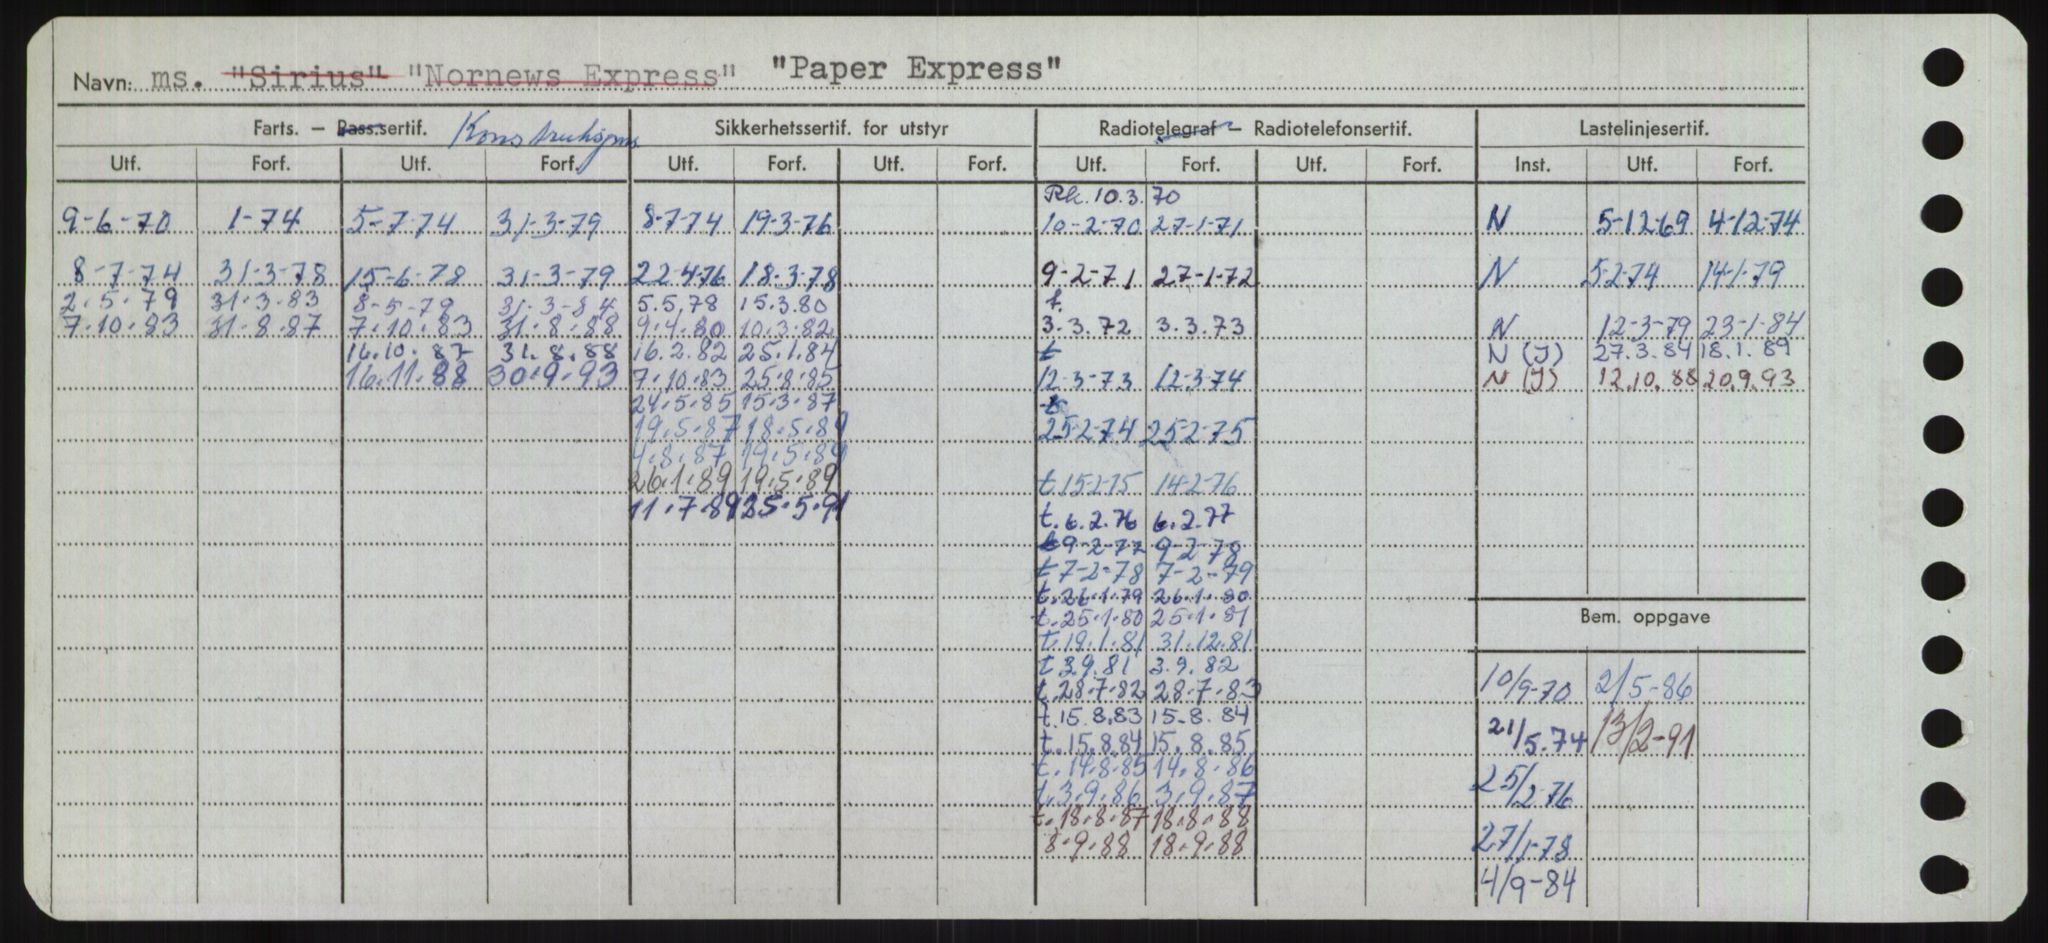 Navn: ms. "Sirius" "Nornews Express" "Paper Express"
Farts. – Pass.sertif. Konstruksjons Sikkerhetssertif. for utstyr Radiotelegraf – Radiotelefonsertif. Lastelinjesertif.
Utf. Forf. Utf. Forf. Utf. Forf. Utf. Forf. Utf. Forf. Utf. Forf. Inst. Utf. Forf.
Rk. 10.3.70
9-6-70 1-74 5-7-74 31-3-79 8-7-74 19-3-76 10-2-70 27-1-71 N 5-12-69 4-12-74
8-7-74 31-3-78 15-6-78 31-3-79 22-4-76 18-3-78 9-2-71 27-1-72 N 5-2-74 14-1-79
2.5.79 31.3.83 8-5-79 31-3-84 5.5.78 15.3.80 t.
7.10.83 31.8.87 7.10.83 31.8.88 9.4.80 10.3.82 3.3.72 3.3.73 N 12-3-79 23-1-84
16.10.87 31.8.88 16.2.82 25.1.84 t N (J) 27.3.84 18.1.89
16.11.88 30.9.93 7.10.83 25.8.85 12-3-73 12-3-74 N (J) 12.10.88 20.9.93
24.5.85 15.3.87 t
19.5.87 18.5.89 25-2-74 25-2-75
4.8.87 19.5.89
26.1.89 19.5.89 t.15-2-75 14-2-76
11.7.89 25.5.91 t.6.2.76 6.2.77
t 9-2-77 9-2-78
t 7-2-78 7-2-79
t.26.1.79 26.1.80
t.25.1.80 25.1.81 Bem. oppgave
t.19.1.81 31.12.81
t 3.9.81 3.9.82
t.28.7.82 28.7.83 10/9-70 2/5-86
t.15.8.83 15.8.84
t.15.8.84 15.8.85 21/5.74 13/2-91
t.14.8.85 14.8.86
t.3.9.86 3.9.87 25/2-76
t.18.8.87 18.8.88
8.9.88 18.9.88 27/1-78
4/9-84